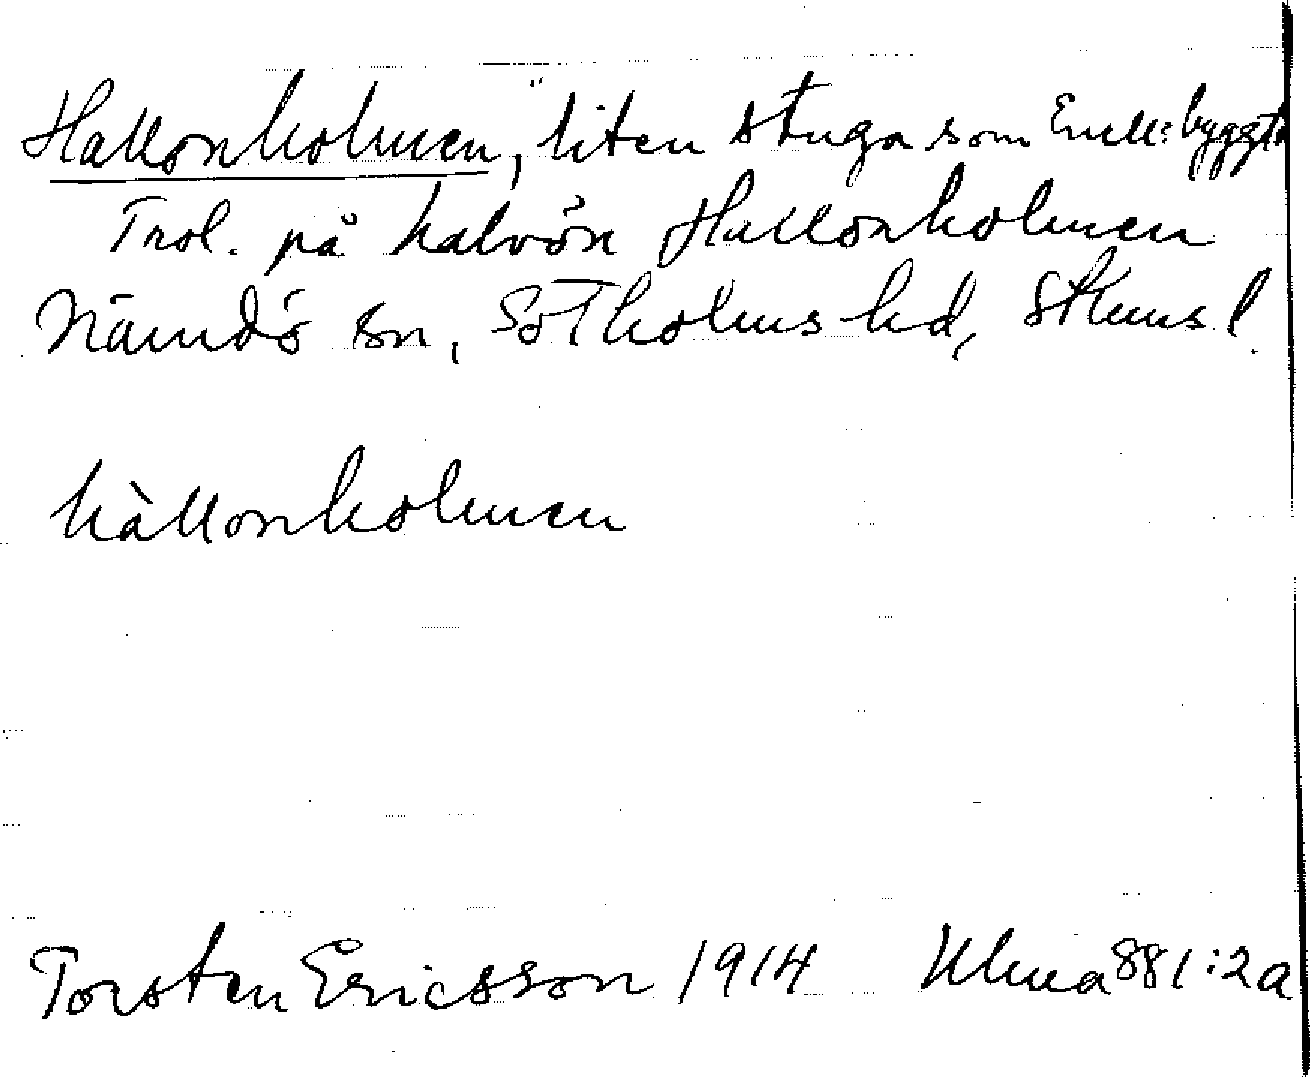 Hallonholmen, "liten stuga som byggt
Trol. på halvön Hallonholmen
Nämdö sn, Sotholms hd, Sthms l.
hàllonholmen
Torsten Ericsson 1914 Ulma 881:2a